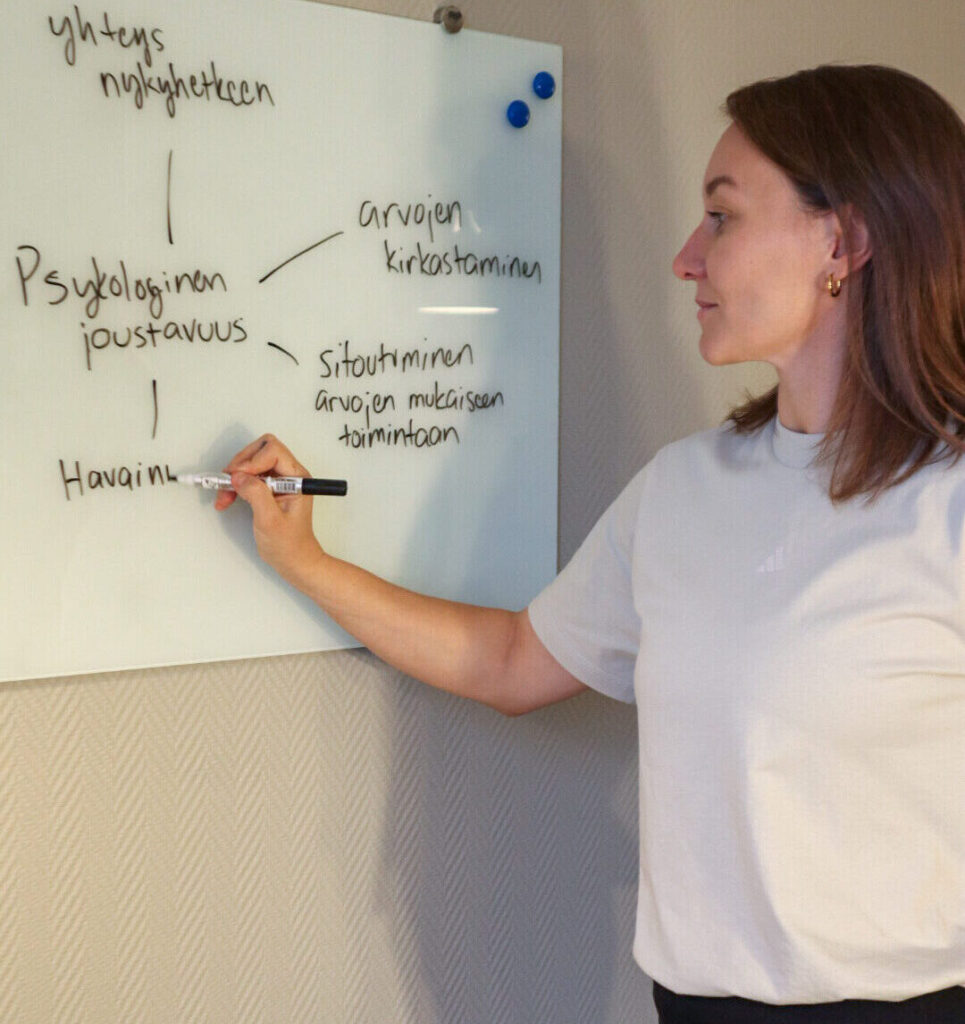 yhteys
nykyhetkeen
arvojen
kirkastaminen
Psykologinen
joustavuus
sitoutuminen
arvojen mukaiseen
toimintaan